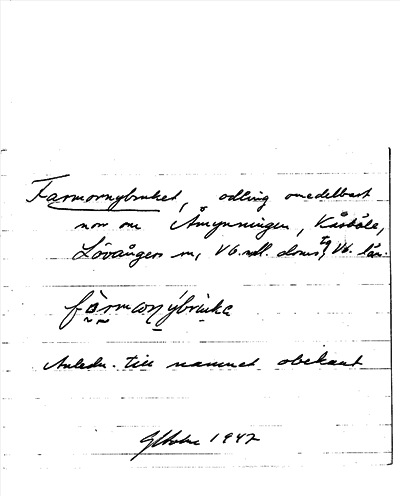 Farmornybruket, odling omedelbart
norr om Åmynningen, Kåsböle,
Lövångers sn, Vb. ndl. doms tg, Vb. län.
fàrmoṇýbru̇ka
Anledn. till namnet obekant
Holm 1942